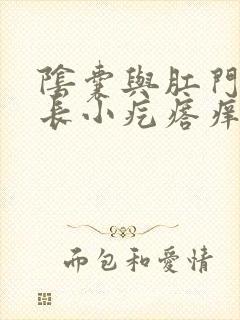 陰囊與肛門
長小疙瘩痒
而包和愛情